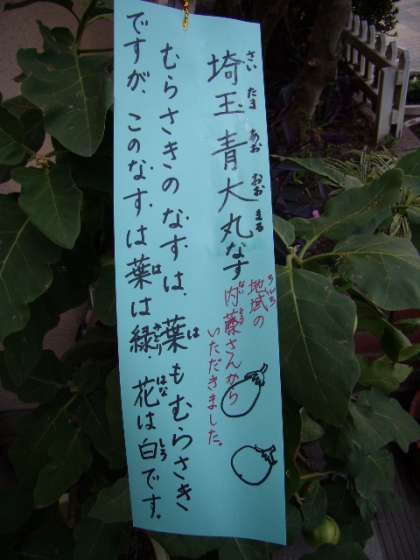 埼玉青大丸なす
さいたまあおおおまる
地域の
ちいき
内藤さんから
ないとう
いただきました。
むらさきのなすは、葉もむらさき
は
ですが、このなすは葉は緑 花は白です。
は みどり はな しろ